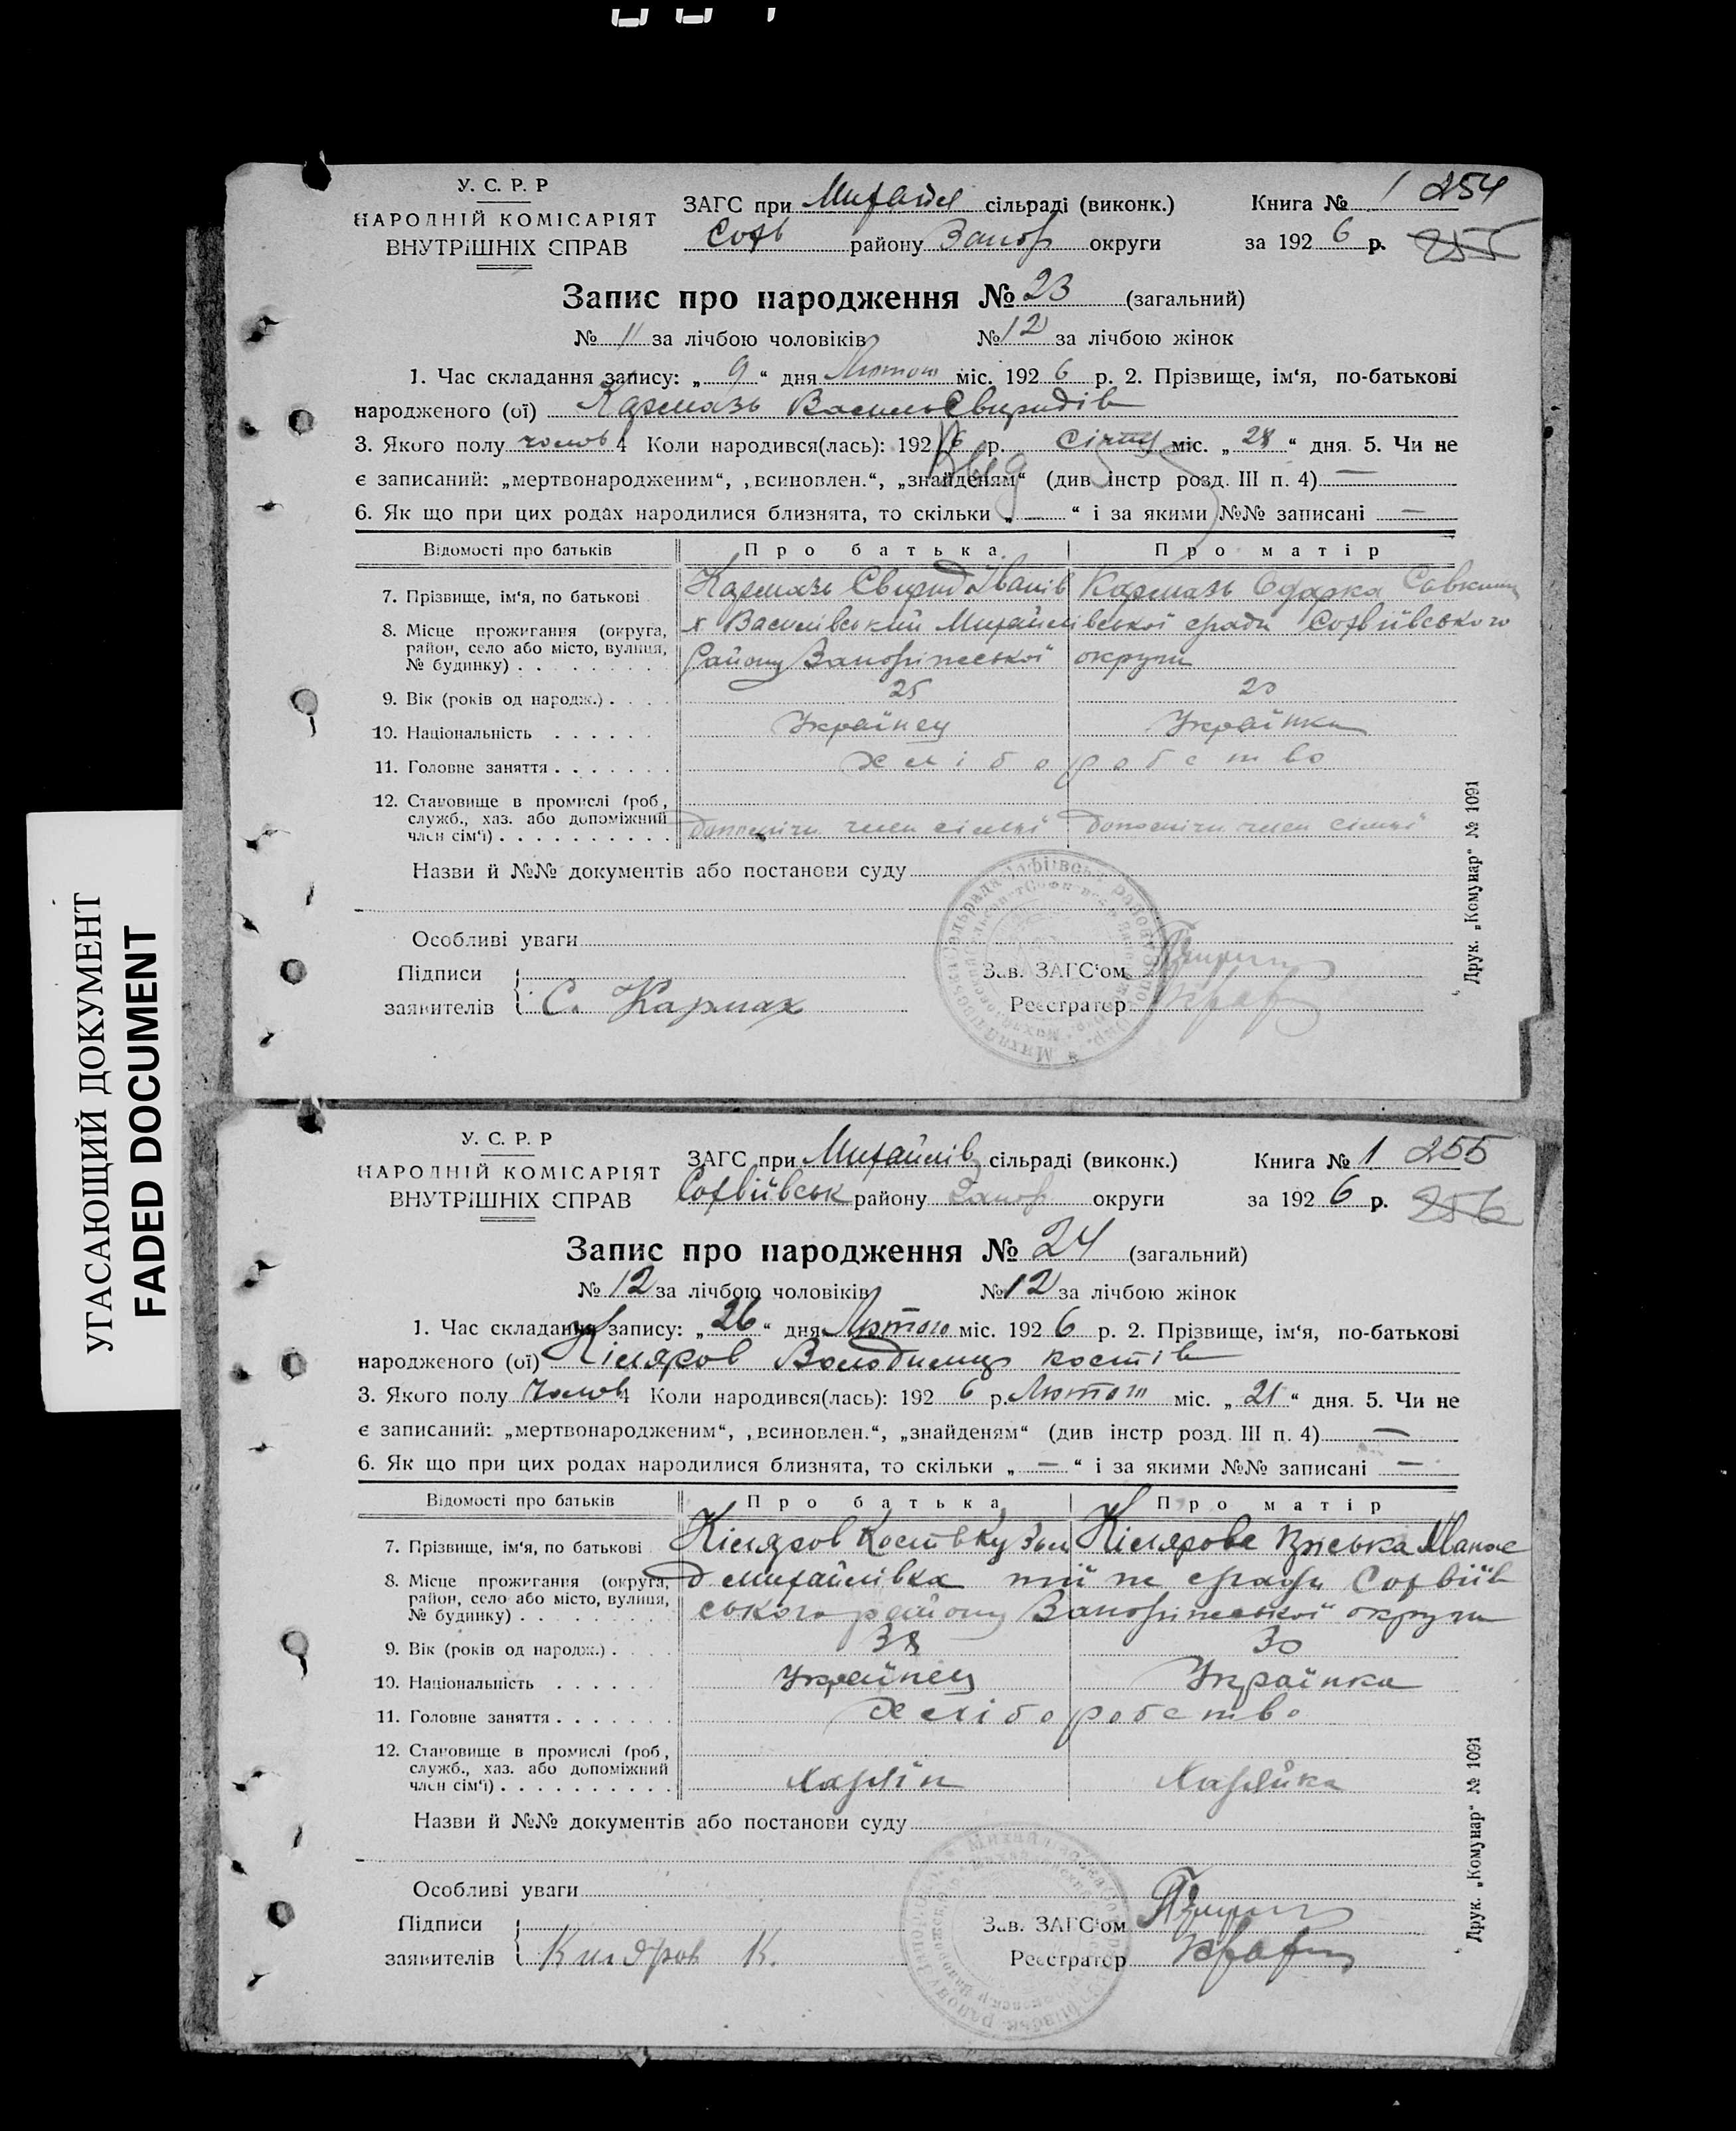 УГАСАЮЩИЙ ДОКУМЕНТ
FADED DOCUMENT
У. С. Р. Р
НАРОДНІЙ КОМІСАРІЯТ
ВНУТРІШНІХ СПРАВ
ЗАГС при Михайл сільраді (виконк.) Книга № 1 254
Софь району Запор округи за 1926 р. 255
Запис про народження № 23 (загальний)
№ 11 за лічбою чоловіків № 12 за лічбою жінок
1. Час складання запису: „ 9 “ дня Лютого міс. 1926 р. 2. Прізвище, ім‘я, по-батькові
народженого (ої) Кармазь Василь Свиридів
3. Якого полу чолов 4 Коли народився(лась): 1926 р. січня міс. „ 28 “ дня. 5. Чи не
є записаний: „мертвонародженим“, „всиновлен.“, „знайденям“ (див інстр розд. III п. 4) —
6. Як що при цих родах народилися близнята, то скільки „ — “ і за якими №№ записані —
Відомості про батьків Про батька Про матір
7. Прізвище, ім‘я, по батькові Кармазь Свирид Іванів Кармазь Одарка Савкина
8. Місце прожигання (округа, район, село або місто, вулиця, № будинку) х Василівський Михайлівської сради Софіївського
Району Запоріжської округи
9. Вік (років од народж.) 25 20
10. Національність Українец Українка
11. Головне заняття хліборобство
12. Становище в промислі (роб, служб., хаз. або допоміжний член сім‘ї) допоміжн член сімьї допоміжн член сімьї
Назви й №№ документів або постанови суду
Особливі уваги
Підписи Зав. ЗАГС‘ом
заявителів С. Кармах Реєстратер
Друк. „Комунар“ № 1091
У. С. Р. Р
НАРОДНІЙ КОМІСАРІЯТ
ВНУТРІШНІХ СПРАВ
ЗАГС при Михайлів сільраді (виконк.) Книга № 1 255
Софіївськ району Запор округи за 1926 р. 256
Запис про народження № 24 (загальний)
№ 12 за лічбою чоловіків № 12 за лічбою жінок
1. Час складання запису: „ 26 “ дня Лютого міс. 1926 р. 2. Прізвище, ім‘я, по-батькові
народженого (ої) Кіляров Володимир костів
3. Якого полу Чолов 4 Коли народився(лась): 1926 р. Лютого міс. „ 21 “ дня. 5. Чи не
є записаний: „мертвонародженим“, „всиновлен.“, „знайденям“ (див інстр розд. III п. 4) —
6. Як що при цих родах народилися близнята, то скільки „ — “ і за якими №№ записані —
Відомості про батьків Про батька Про матір
7. Прізвище, ім‘я, по батькові Кіляров Кость Кузьм Кілярова
8. Місце прожигання (округа, район, село або місто, вулиця, № будинку) д михайлівка тії ж сради Софіїв
ського району Запоріжської округи
9. Вік (років од народж.) 38 30
10. Національність Українец Українка
11. Головне заняття хліборобство
12. Становище в промислі (роб, служб., хаз. або допоміжний член сім‘ї) Хазяїн Хазяйка
Назви й №№ документів або постанови суду
Особливі уваги
Підписи Зав. ЗАГС‘ом
заявителів Киляров К. Реєстратер
Друк. „Комунар“ № 1091